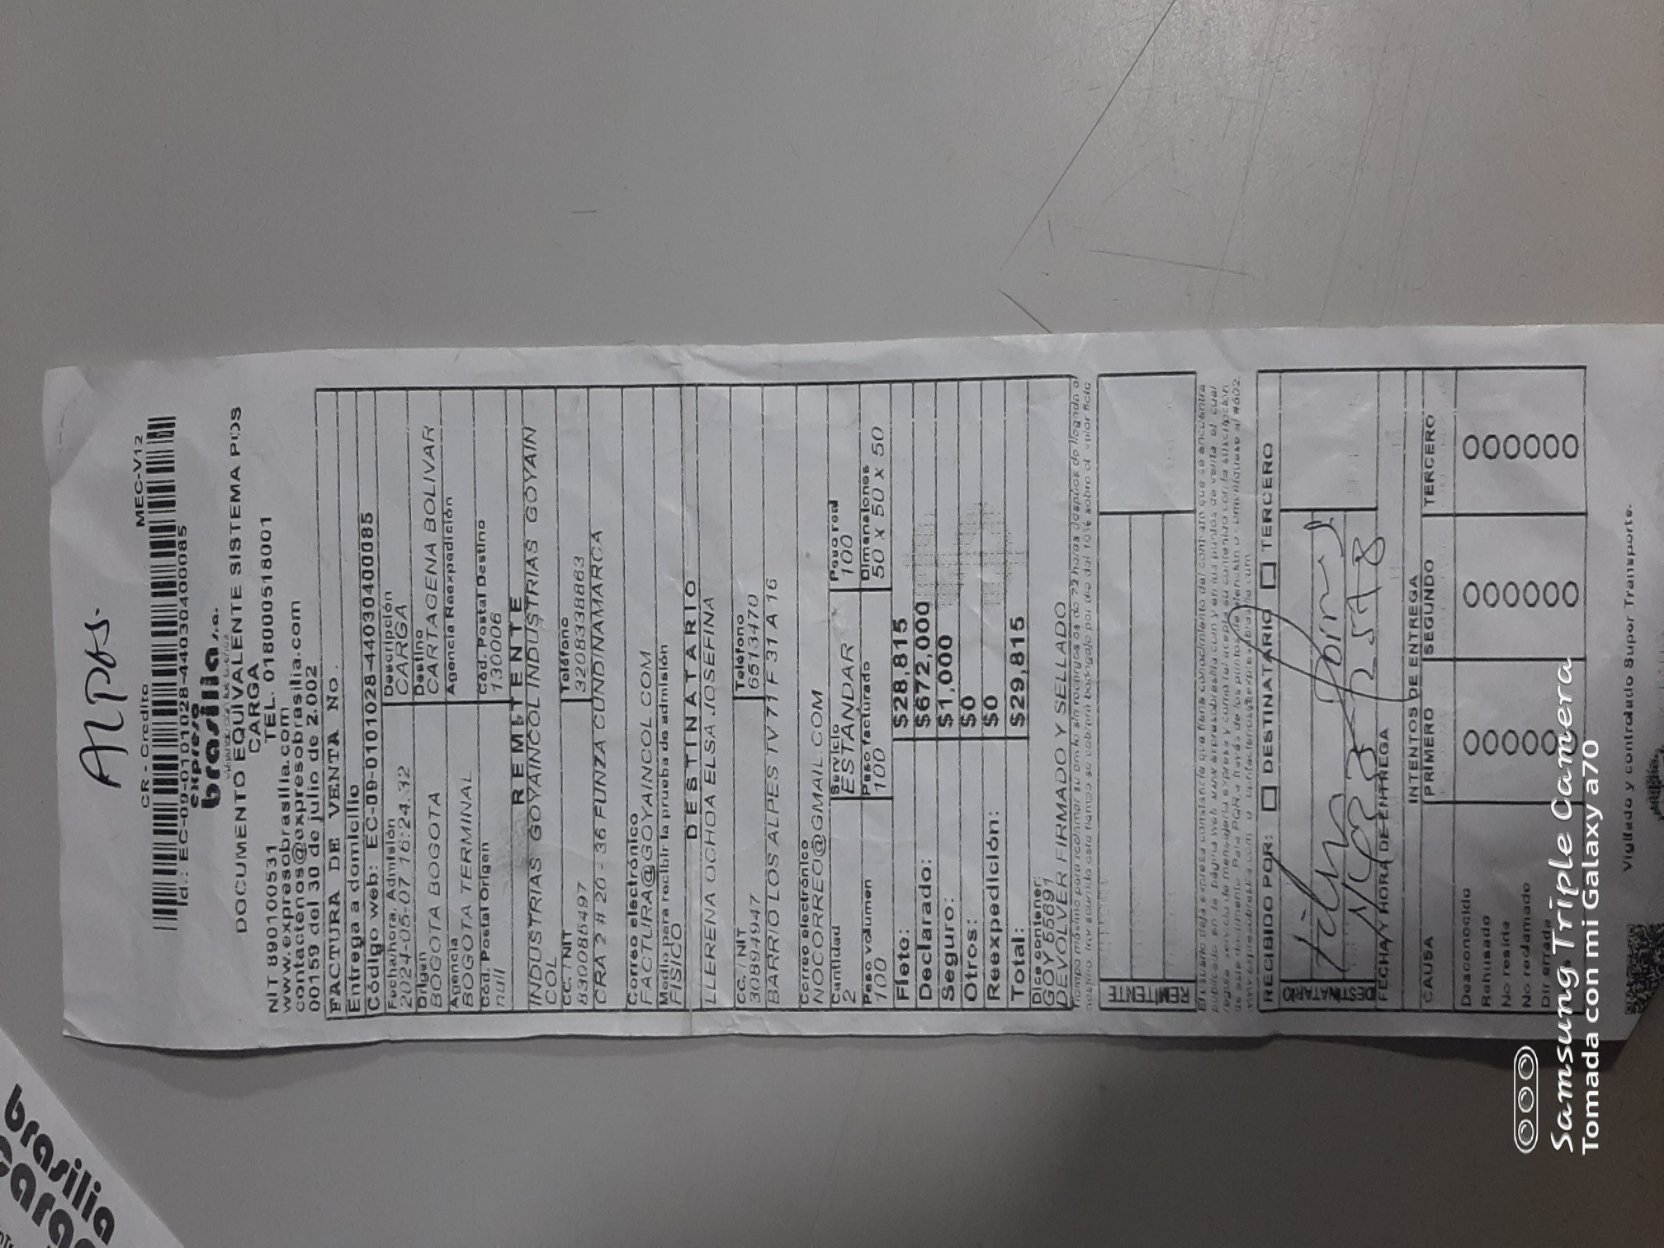 Alpes.
CR - Credito MEC-V12
Id.: EC-09-0101028-44030400085
expreso
brasilia s.a.
DOCUMENTO EQUIVALENTE SISTEMA POS
CARGA
NIT 890100531 TEL. 018000518001
www.expresobrasilia.com
contactenos@expresobrasilia.com
00159 del 30 de julio de 2.002
FACTURA DE VENTA No.
Entrega a domicilio
Código web: EC-09-0101028-44030400085
Fecha/hora. Admisión Descripción
2024-05-07 16:24:32 CARGA
Origen Destino
BOGOTA BOGOTA CARTAGENA BOLIVAR
Agencia Agencia Reexpedición
BOGOTA TERMINAL
Cód. Postal Origen Cód. Postal Destino
null 130006
REMITENTE
INDUSTRIAS GOYAINCOL INDUSTRIAS GOYAIN
COL
CC. / NIT Teléfono
830085497 3208338863
CRA 2 # 20 - 36 FUNZA CUNDINAMARCA
Correo electrónico
FACTURA@GOYAINCOL.COM
Medio para recibir la prueba de admisión
FISICO
DESTINATARIO
LLERENA OCHOA ELSA JOSEFINA
CC. / NIT Teléfono
30894947 6513470
BARRIO LOS ALPES TV 71 F 31 A 16
Correo electrónico
NOCORREO@GMAIL.COM
Cantidad Servicio Peso real
2 ESTANDAR 100
Peso volumen Peso facturado Dimensiones
100 100 50 x 50 x 50
Flete: $28,815
Declarado: $672,000
Seguro: $1,000
Otros: $0
Reexpedición: $0
Total: $29,815
Dice contener:
GOY 55691
DEVOLVER FIRMADO Y SELLADO
REMITENTE
RECIBIDO POR: DESTINATARIO TERCERO
DESTINATARIO
FECHA Y HORA DE ENTREGA
INTENTOS DE ENTREGA
CAUSA PRIMERO SEGUNDO TERCERO
Desconocido
Rehusado
No reside
No reclamado
Dir errada
Vigilado y controlado Super Transporte.
brasilia
carga
Samsung Triple Camera
Tomada con mi Galaxy a70